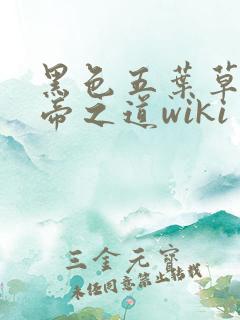 黑色五葉草
帝之道wiki
三金元寶
未经同意禁止转载